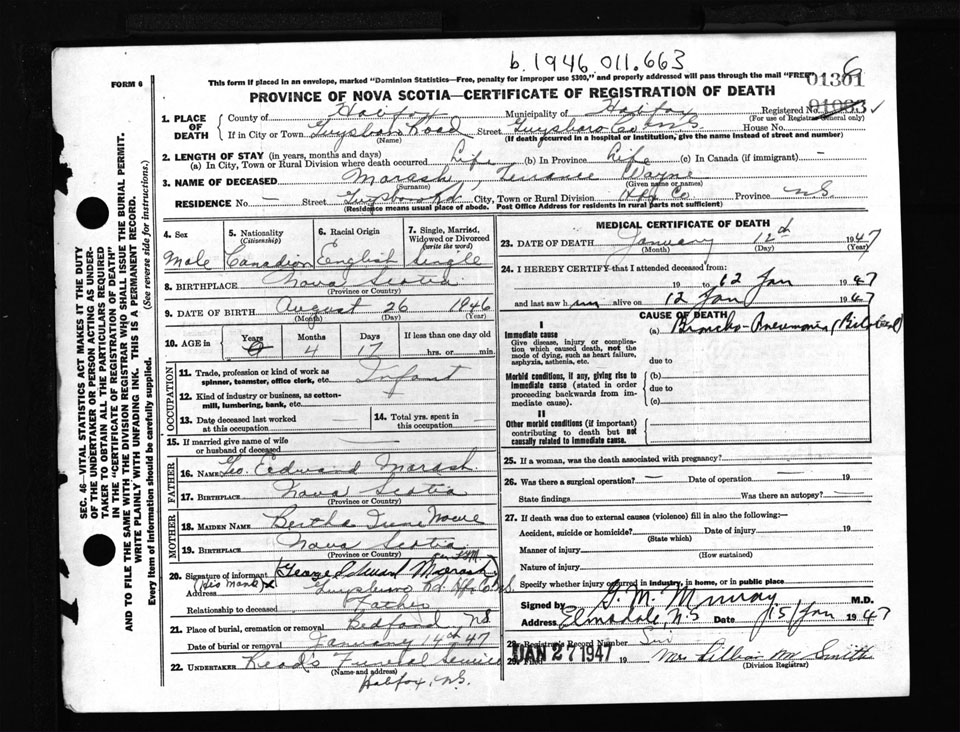 b.1946.011.663
FORM 6
This form if placed in an envelope, marked "Dominion Statistics—Free, penalty for improper use $300," and properly addressed will pass through the mail "FREE"
01301 6
PROVINCE OF NOVA SCOTIA—CERTIFICATE OF REGISTRATION OF DEATH
01083
1. PLACE OF DEATH
County of Halifax Municipality of Halifax Registered No.
(For use of Registrar General only)
If in City or Town Guysboro Road Street Guysboro Co N.S House No.
(Name) (If death occurred in a hospital or institution, give the name instead of street and number)
2. LENGTH OF STAY (in years, months and days)
(a) In City, Town or Rural Division where death occurred Life (b) In Province Life (c) In Canada (if immigrant) —
3. NAME OF DECEASED Marash, Terrance Wayne
(Surname) (Given name or names)
RESIDENCE No. — Street Guysboro Rd City, Town or Rural Division Hfx Co Province N.S.
(Residence means usual place of abode. Post Office Address for residents in rural parts not sufficient)
4. Sex 5. Nationality (Citizenship) 6. Racial Origin 7. Single, Married, Widowed or Divorced (write the word)
Male Canadian English Single
8. BIRTHPLACE Nova Scotia
(Province or Country)
9. DATE OF BIRTH August 26 1946
(Month) (Day) (Year)
10. AGE in Years Months Days If less than one day old
0 4 17 hrs. or min.
OCCUPATION
11. Trade, profession or kind of work as spinner, teamster, office clerk, etc. Infant
12. Kind of industry or business, as cotton-mill, lumbering, bank, etc.
13. Date deceased last worked at this occupation 14. Total yrs. spent in this occupation
15. If married give name of wife or husband of deceased —
FATHER
16. NAME Geo. Edward Marash
17. BIRTHPLACE Nova Scotia
(Province or Country)
MOTHER
18. MAIDEN NAME Bertha Irene
19. BIRTHPLACE Nova Scotia
(Province or Country)
20. Signature of informant (George Edward Marash)
(His Mark) X
Address Guysboro Rd. Hfx Co N.S
Relationship to deceased Father
21. Place of burial, cremation or removal Bedford, N.S.
Date of burial or removal January 14th 47
22. UNDERTAKER Reads Funeral Service
(Name and address)
Halifax, N.S.
MEDICAL CERTIFICATE OF DEATH
23. DATE OF DEATH January 12th 1947
(Month) (Day) (Year)
24. I HEREBY CERTIFY that I attended deceased from:
19 to 12 Jan 1947
and last saw him alive on 12 Jan 1947
CAUSE OF DEATH
I
Immediate cause
Give disease, injury or complication which caused death, not the mode of dying, such as heart failure, asphyxia, asthenia, etc.
(a) Broncho-Pneumonia (Bilateral)
due to
Morbid conditions, if any, giving rise to immediate cause (stated in order proceeding backwards from immediate cause).
(b)
due to
(c)
II
Other morbid conditions (if important) contributing to death but not causally related to immediate cause.
25. If a woman, was the death associated with pregnancy?
26. Was there a surgical operation? — Date of operation — 19
State findings Was there an autopsy? —
27. If death was due to external causes (violence) fill in also the following:—
Accident, suicide or homicide? Date of injury 19
(State which)
Manner of injury
(How sustained)
Nature of injury
Specify whether injury occurred in industry, in home, or in public place
Signed by G. M. Murray M.D.
Address Elmsdale, N.S Date 15/Jan 1947
28. Registrar's Record Number
29. JAN 27 1947 19 Mrs Lillian M Smith
(Division Registrar)
SEC. 46—VITAL STATISTICS ACT MAKES IT THE DUTY OF THE UNDERTAKER OR PERSON ACTING AS UNDERTAKER TO OBTAIN ALL THE PARTICULARS REQUIRED IN THE "CERTIFICATE OF REGISTRATION OF DEATH" AND TO FILE THE SAME WITH THE DIVISION REGISTRAR WHO SHALL ISSUE THE BURIAL PERMIT.
WRITE PLAINLY WITH UNFADING INK. THIS IS A PERMANENT RECORD.
Every item of information should be carefully supplied. (See reverse side for instructions.)